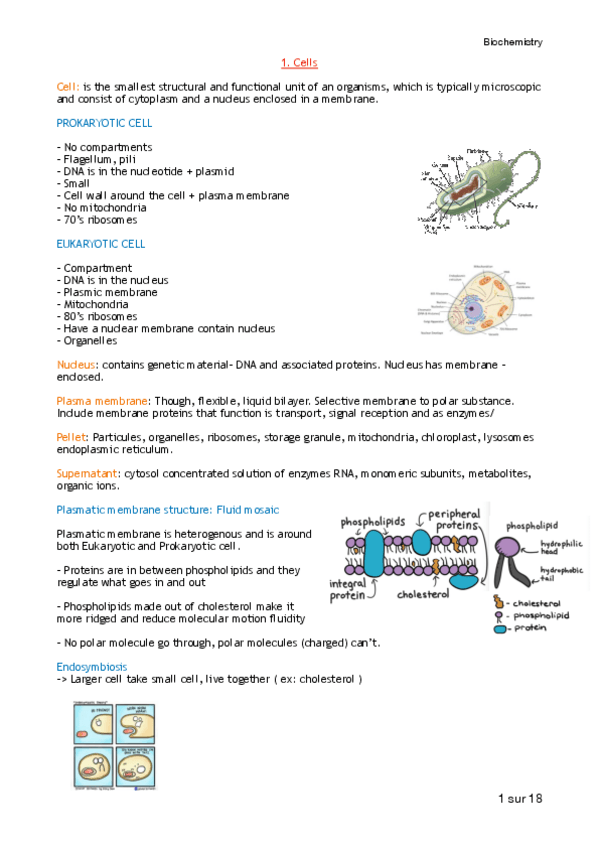 Biochemistry
1. Cells
Cell: is the smallest structural and functional unit of an organisms, which is typically microscopic
and consist of cytoplasm and a nucleus enclosed in a membrane.
PROKARYOTIC CELL
- No compartments
- Flagellum, pili
- DNA is in the nucleotide + plasmid
- Small
- Cell wall around the cell + plasma membrane
- No mitochondria
- 70's ribosomes
EUKARYOTIC CELL
- Compartment
- DNA is in the nucleus
- Plasmic membrane
- Mitochondria
- 80's ribosomes
- Have a nuclear membrane contain nucleus
- Organelles
Nucleus: contains genetic material- DNA and associated proteins. Nucleus has membrane -
enclosed.
Plasma membrane: Though, flexible, liquid bilayer. Selective membrane to polar substance.
Include membrane proteins that function is transport, signal reception and as enzymes/
Pellet: Particules, organelles, ribosomes, storage granule, mitochondria, chloroplast, lysosomes
endoplasmic reticulum.
Supernatant: cytosol concentrated solution of enzymes RNA, monomeric subunits, metabolites,
organic ions.
Plasmatic membrane structure: Fluid mosaic
Plasmatic membrane is heterogenous and is around
both Eukaryotic and Prokaryotic cell.
- Proteins are in between phospholipids and they
regulate what goes in and out
- Phospholipids made out of cholesterol make it
more ridged and reduce molecular motion fluidity
- No polar molecule go through, polar molecules (charged) can't.
phospholipids
peripheral
proteins
integral
protein
cholesterol
phospholipid
hydrophilic
head
hydrophobic
tail
- cholesterol
- phospholipid
- protein
Endosymbiosis
-> Larger cell take small cell, live together ( ex: cholesterol )
1 sur 18